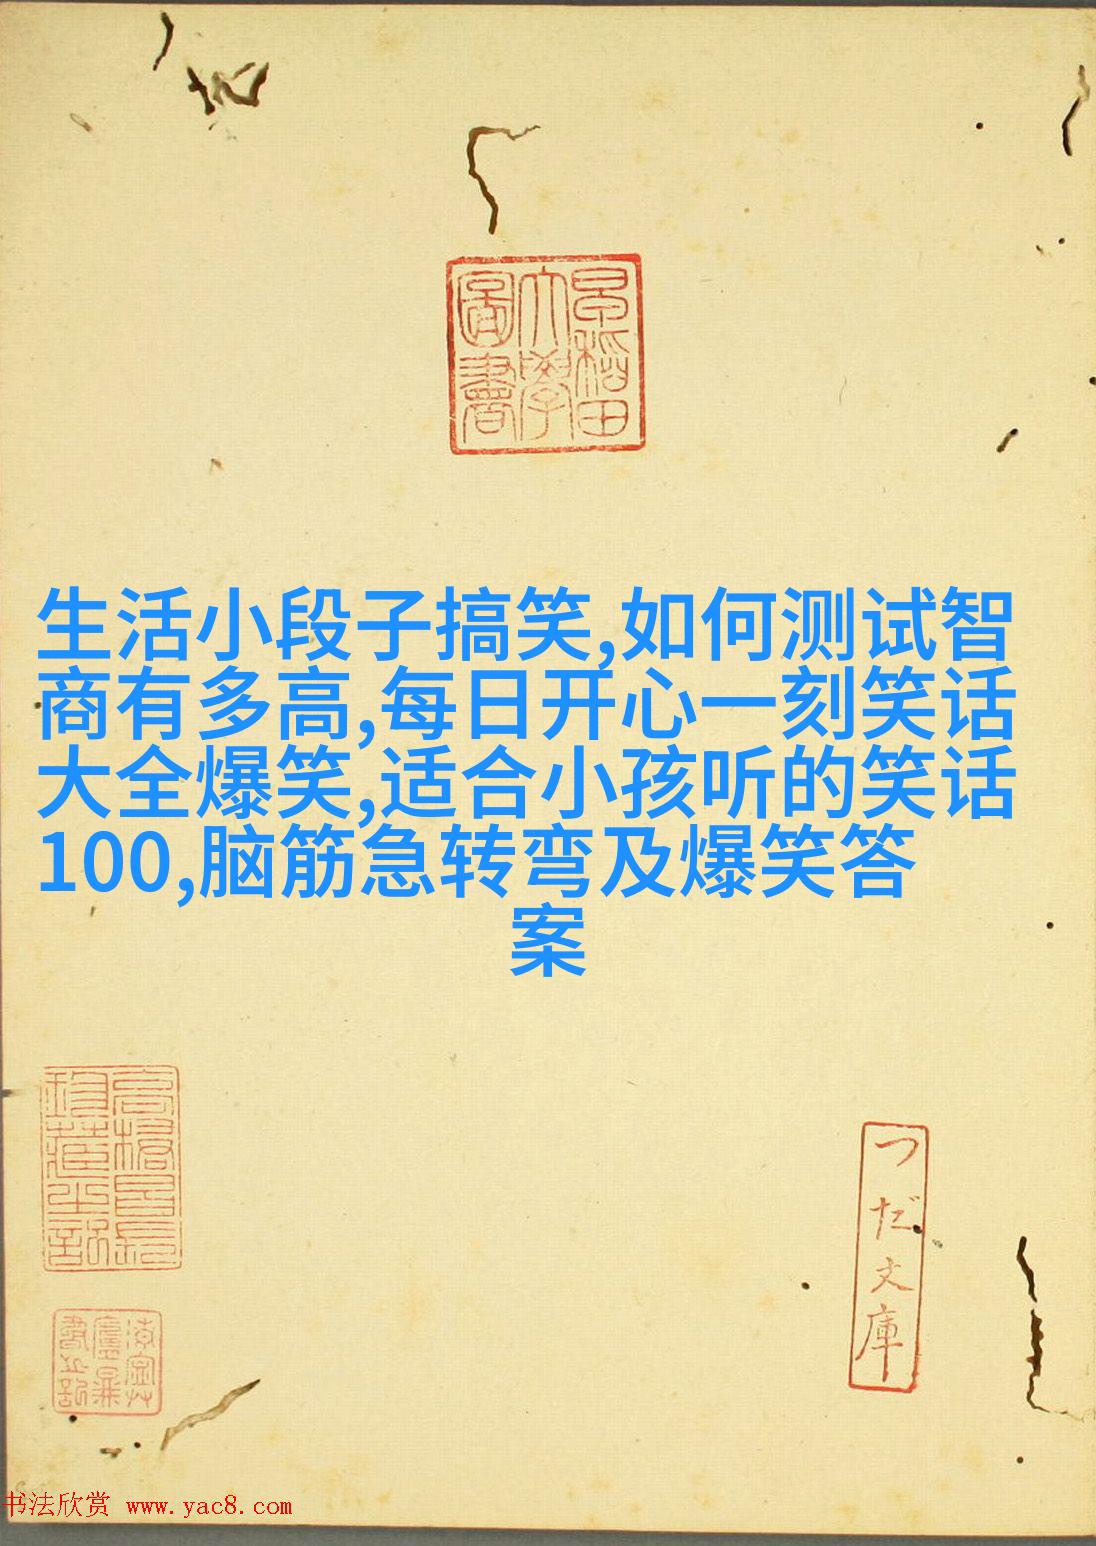 早稻田
大學
圖書
生活小段子搞笑,如何测试智
商有多高,每日开心一刻笑话
大全爆笑,适合小孩听的笑话
100,脑筋急转弯及爆笑答
案
つだ文庫
书法欣赏 www.yac8.com